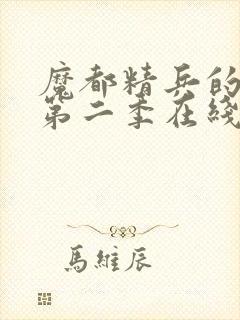 魔都精兵的
第二季在綫
馬維辰